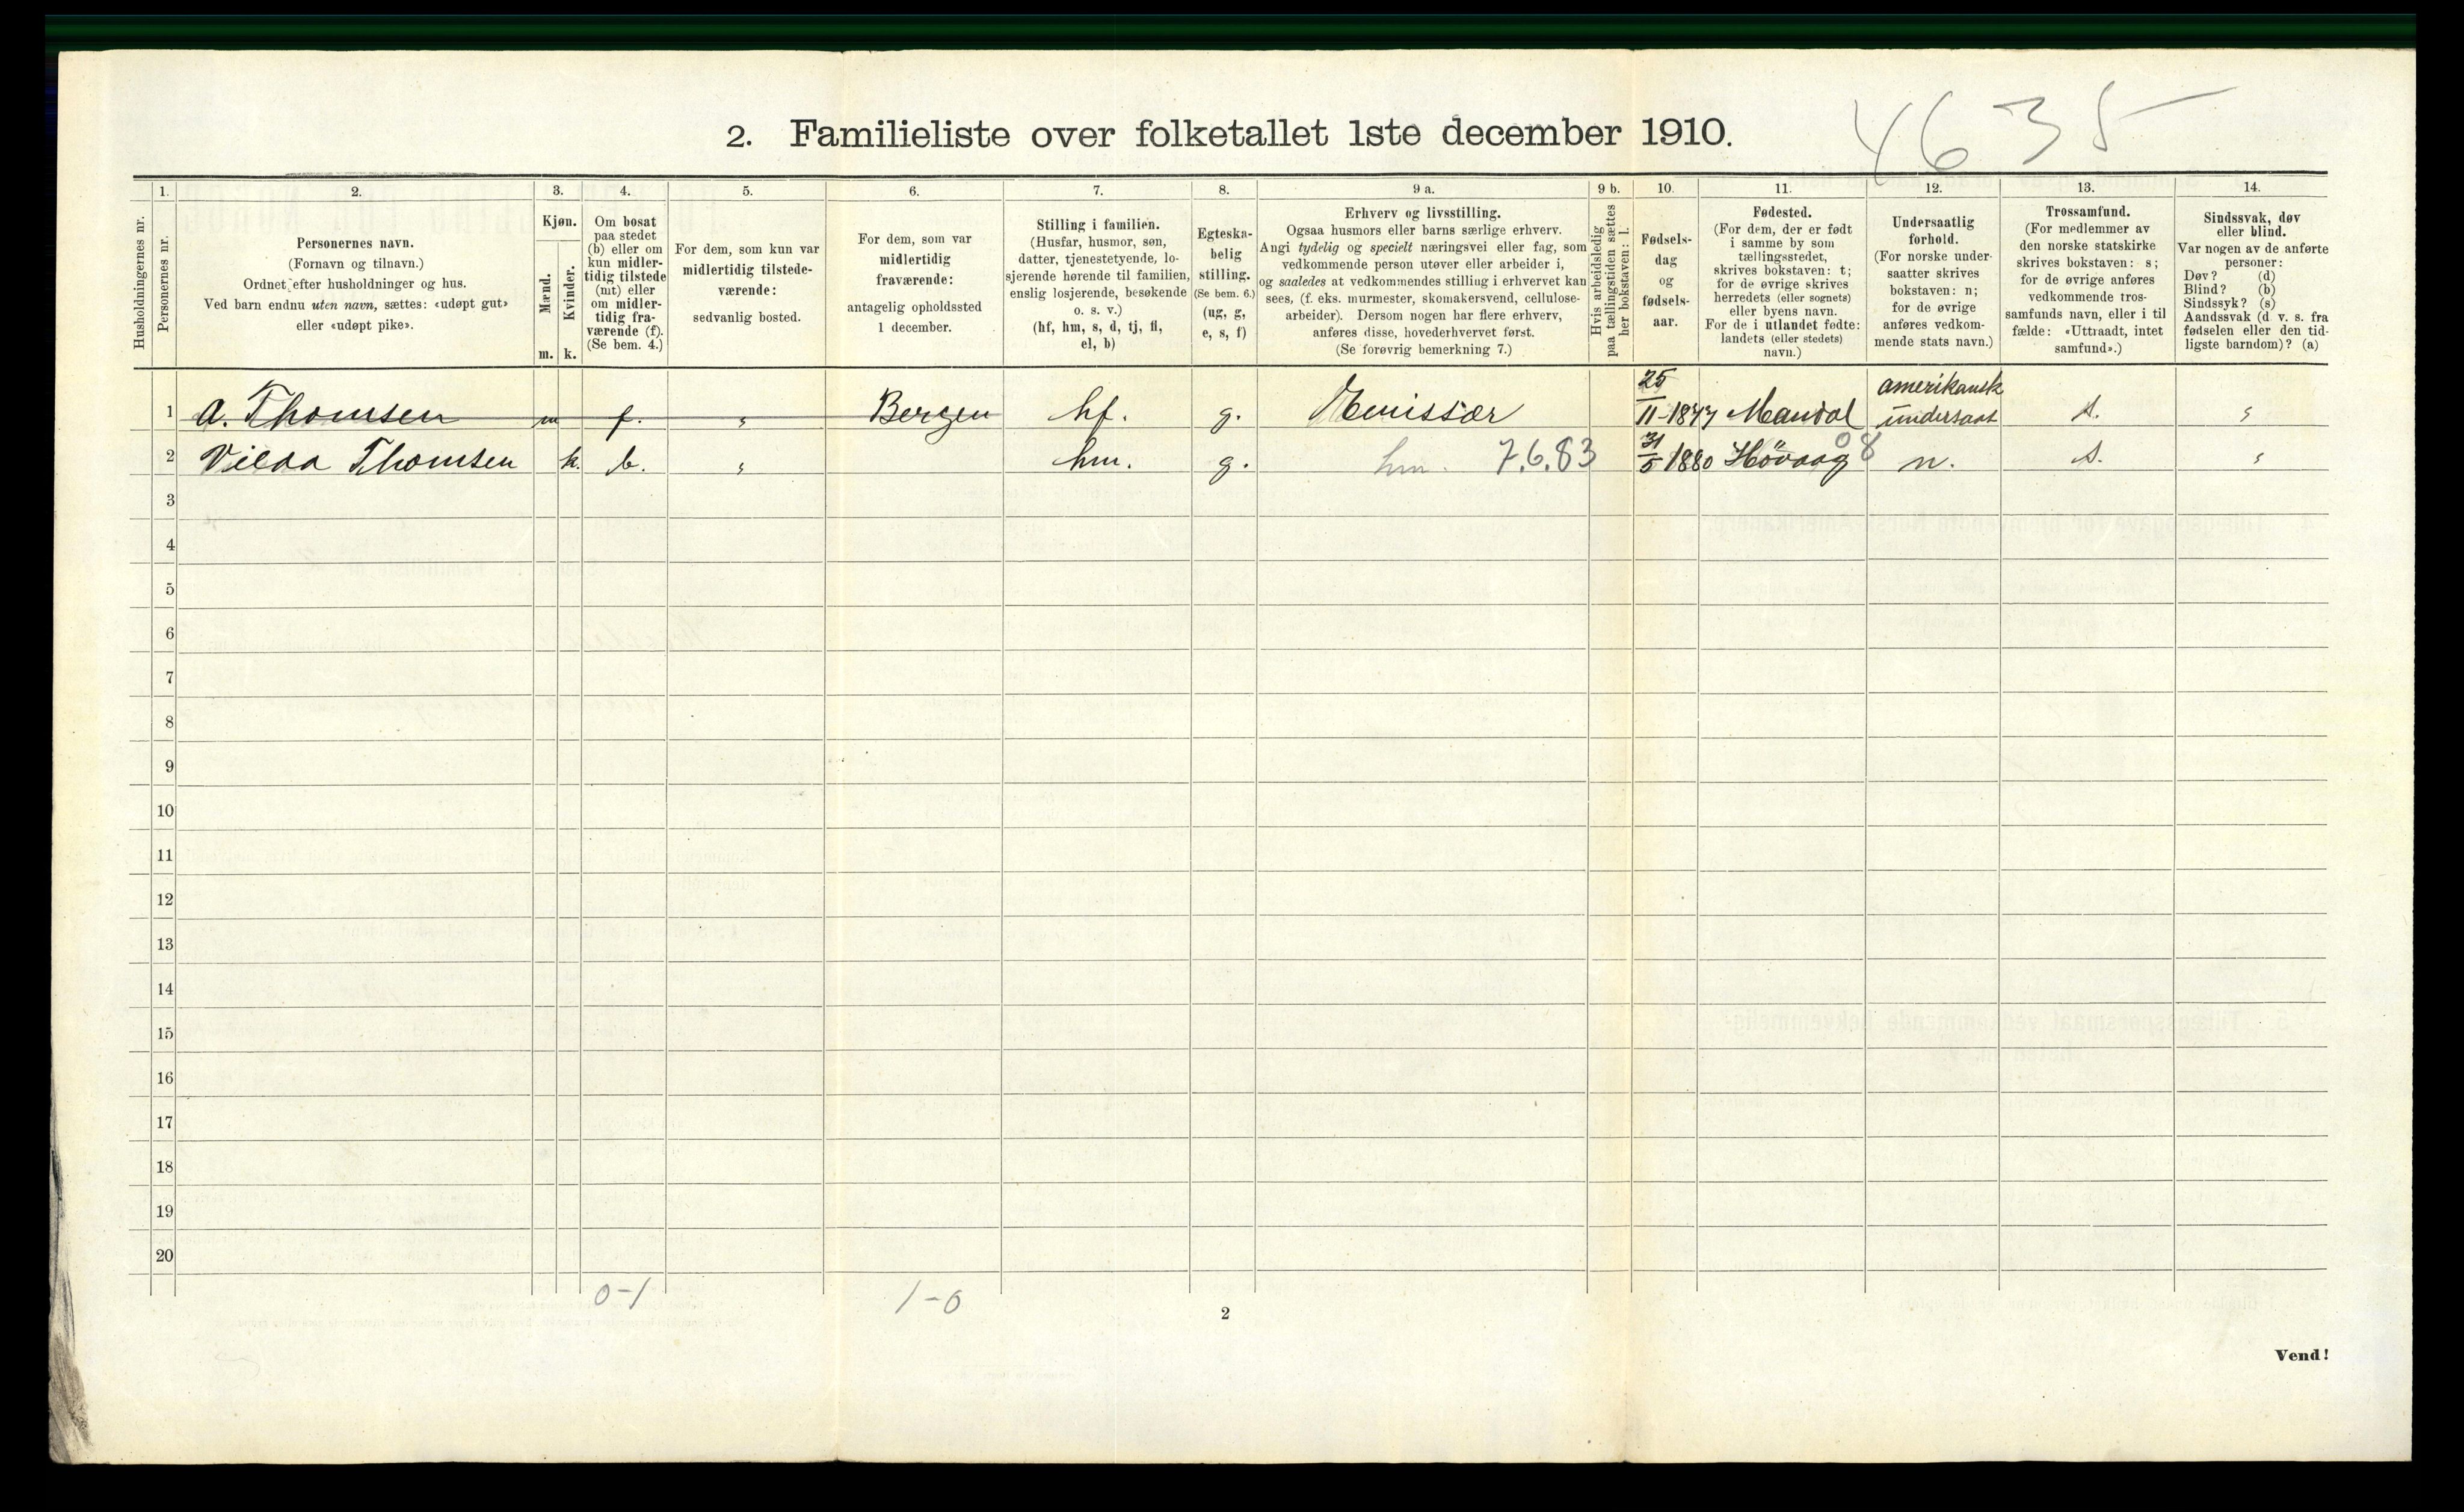 4635
2. Familieliste over folketallet 1ste december 1910.
1. 2. 3. 4. 5. 6. 7. 8. 9 a. 9 b. 10. 11. 12. 13. 14.
Husholdningernes nr.
Personernes nr.
Personernes navn.
(Fornavn og tilnavn.)
Ordnet efter husholdninger og hus.
Ved barn endnu uten navn, sættes: «udøpt gut»
eller «udøpt pike».
Kjøn.
Mænd.
Kvinder.
m. k.
Om bosat
paa stedet
(b) eller om
kun midler-
tidig tilstede
(mt) eller
om midler-
tidig fra-
værende (f).
(Se bem. 4.)
For dem, som kun var
midlertidig tilstede-
værende:
sedvanlig bosted.
For dem, som var
midlertidig
fraværende:
antagelig opholdssted
1 december.
Stilling i familien.
(Husfar, husmor, søn,
datter, tjenestetyende, lo-
sjerende hørende til familien,
enslig losjerende, besøkende
o. s. v.)
(hf, hm, s, d, tj, fl,
el, b)
Egteska-
belig
stilling.
(Se bem. 6.)
(ug, g,
e, s, f)
Erhverv og livsstilling.
Ogsaa husmors eller barns særlige erhverv.
Angi tydelig og specielt næringsvei eller fag, som
vedkommende person utøver eller arbeider i,
og saaledes at vedkommendes stilling i erhvervet kan
sees, (f. eks. murmester, skomakersvend, cellulose-
arbeider). Dersom nogen har flere erhverv,
anføres disse, hovederhvervet først.
(Se forøvrig bemerkning 7.)
Hvis arbeidsledig
paa tællingstiden sættes
her bokstaven: l.
Fødsels-
dag
og
fødsels-
aar.
Fødested.
(For dem, der er født
i samme by som
tællingsstedet,
skrives bokstaven: t;
for de øvrige skrives
herredets (eller sognets)
eller byens navn.
For de i utlandet fødte:
landets (eller stedets)
navn.)
Undersaatlig
forhold.
(For norske under-
saatter skrives
bokstaven: n;
for de øvrige
anføres vedkom-
mende stats navn.)
Trossamfund.
(For medlemmer av
den norske statskirke
skrives bokstaven: s;
for de øvrige anføres
vedkommende tros-
samfunds navn, eller i til
fælde: «Uttraadt, intet
samfund».)
Sindssvak, døv
eller blind.
Var nogen av de anførte
personer:
Døv? (d)
Blind? (b)
Sindssyk? (s)
Aandssvak (d. v. s. fra
fødselen eller den tid-
ligste barndom)? (a)
1 A. Thomsen m f. " Bergen hf. g. 25/11-1877 Mandal amerikansk undersaat s. "
2 Vilda Thomsen k. b. " hm. g. hm. 7.6.83 31/5 1880 Hövaag 08 n. s. "
3
4
5
6
7
8
9
10
11
12
13
14
15
16
17
18
19
20
0-1 1-0
2
Vend!